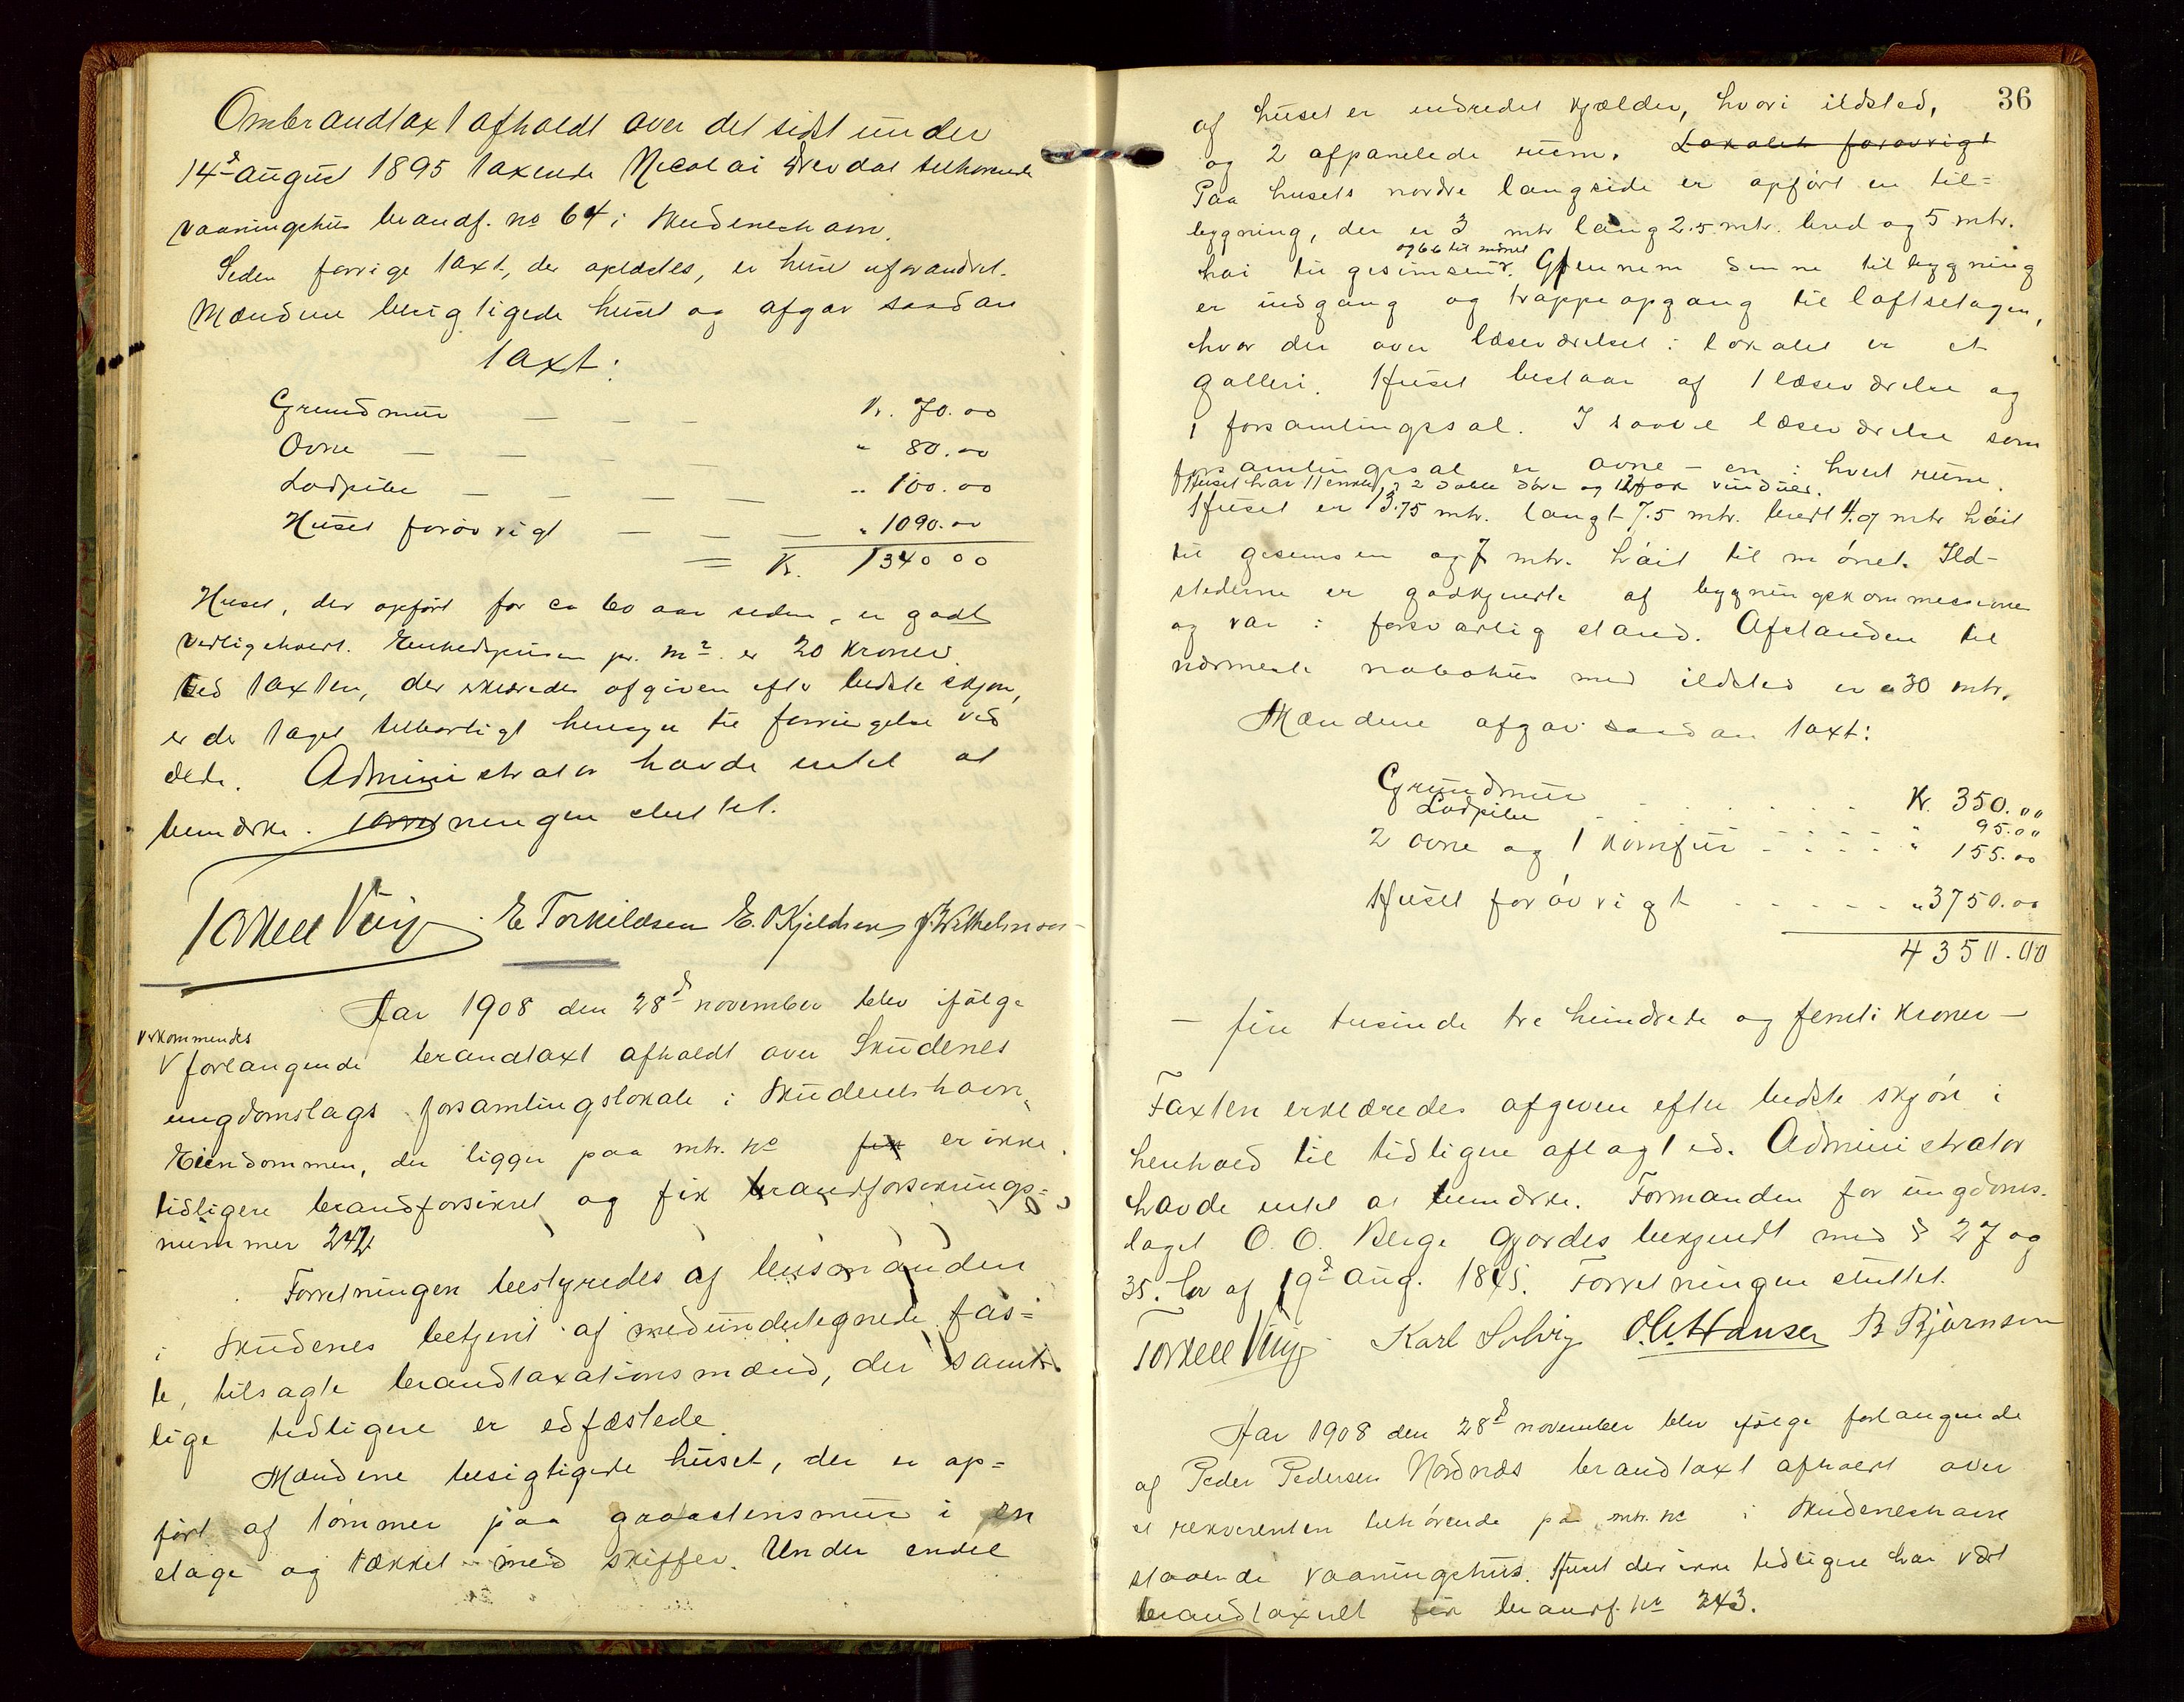 Ombrandtaxt afholdt over det sidst under
14d august 1895 taxerede Nicolai Drevdal tilhørende
vaaningshus brandf. no 64 i Skudeneshavn.
Siden forrige taxt, der oplæstes, er huset uforandret.
Mændene besigtigede huset og afgav saadan
taxt:
Grundmur — — — Kr. 70.00
Ovne — — — — " 80.00
Lodpibe — — — — " 100.00
Huset forøvrigt — — — " 1090.00
= Kr. 1340 00
Huset, der opført for ca 60 aar siden, er godt
vedligeholdt. Enhedsprisen pr. m2. er 20 kroner.
Ved taxten, der erklæredes afgiven efter bedste skjøn,
er der taget tilbørligt hensyn til forringelse ved
ælde. Administrator havde intet at
bemærke. Forretningen sluttet.
Torkell Vinje E Torkildsen E. O Kjeldsen J. Wilhelmsen
Aar 1908 den 28d november blev ifølge
vedkommendes
V forlangende brandtaxt afholdt over Skudenes
ungdomslags forsamlingslokale i Skudeneshavn.
Eiendommen, der ligger paa mtr. no fik er ikke
tidligere brandforsikret og fik brandforsikrings=
nummer 242.
Forretningen bestyredes af lensmanden
i Skudenes betjent af medundertegnede fas=
te, tilsagte brandtaxationsmænd, der samt=
lige tidligere er edfæstede.
Mændene besigtigede huset, der er op=
ført af tømmer paa graastensmur i en
etage og tækket med skiffer. Under endel
36
af huset er indredet kjælder, hvori ildsted,
og 2 afpanelede rum. Lokalet forøvrigt
Paa husets nordre langside er opført en til=
bygning, der er 3 mtr lang 2.5 mtr. bred og 5 mtr.
og 6.6 til mønet
høi til gesimsen V. Gjennem denne tilbygning
er indgang og trappeopgang til loftsetagen,
hvor der over læseværelset i lokalet er et
galleri. Huset bestaar af 1 læseværelse og
1 forsamlingssal. I saavel læseværelse som
forsamlingssal er ovne – en i hvert rum.
Huset har 11 enkle, 2 doble døre og 12 fag vinduer.
Huset er 13.75 mtr. langt 7.5 mtr. bredt 4.7 mtr høit
til gesimsen og 7 mtr. høit til mønet. Ild-
stederne er godkjendte af bygningskommissionen
og var i forsvarlig stand. Afstanden til
nærmeste nabohus med ildsted er 30 mtr.
Mændene afgav saadan taxt:
Grundmur . . . . . . Kr. 350.00
Lodpibe . . . . . . " 95.00
2 ovne og 1 komfur . . . . . " 155.00
Huset forøvrigt . . . . . " 3750.00
4350.00
– fire tusinde tre hundrede og femti kroner –
Taxten erklæredes afgiven efter bedste skjøn i
henhold til tidligere aflagt ed. Administrator
havde intet at bemærke. Formanden for ungdoms-
laget O. O. Berge gjordes bekjendt med § 27 og
35. lov af 19d aug. 1845. Forretningen sluttet.
Torkell Vinje Karl Solvig O. G. Hansen B Bjørnsen
Aar 1908 den 28d november blev ifølge forlangende
af Peder Pedersen Nordnæs brandtaxt afholdt over
et rekvirenten tilhørende paa mtr. no i Skudeneshavn
staaende vaaningshus. Huset der ikke tidligere har vært
brandtaxeret fik brandf. no 243.